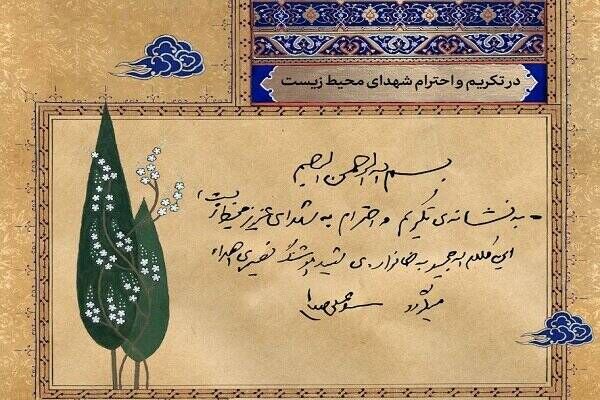 در تکریم و احترام شهدای محیط زیست
بسم الله الرحمن الرحیم
- به نشانه‌ی تکریم و احترام به شهدای عزیز محیط زیست،
این به خانواده‌ی شهید اهداء
میگردد